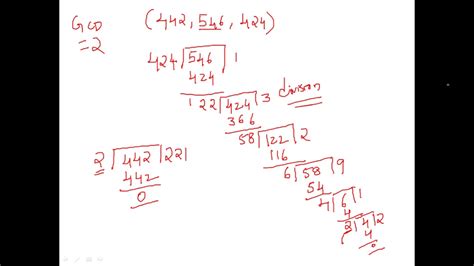 GCD (442, 546, 424)
=2
424 | 546 | 1
424
122 | 424 | 3 division
366
58 | 122 | 2
116
2 | 442 | 221
442
0
6 | 58 | 9
54
4 | 6 | 1
4
2 | 4 | 2
4
0